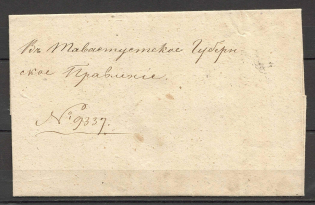 Въ Тавастгусткое Губерн-
ское Правленіе.
№ 9337.